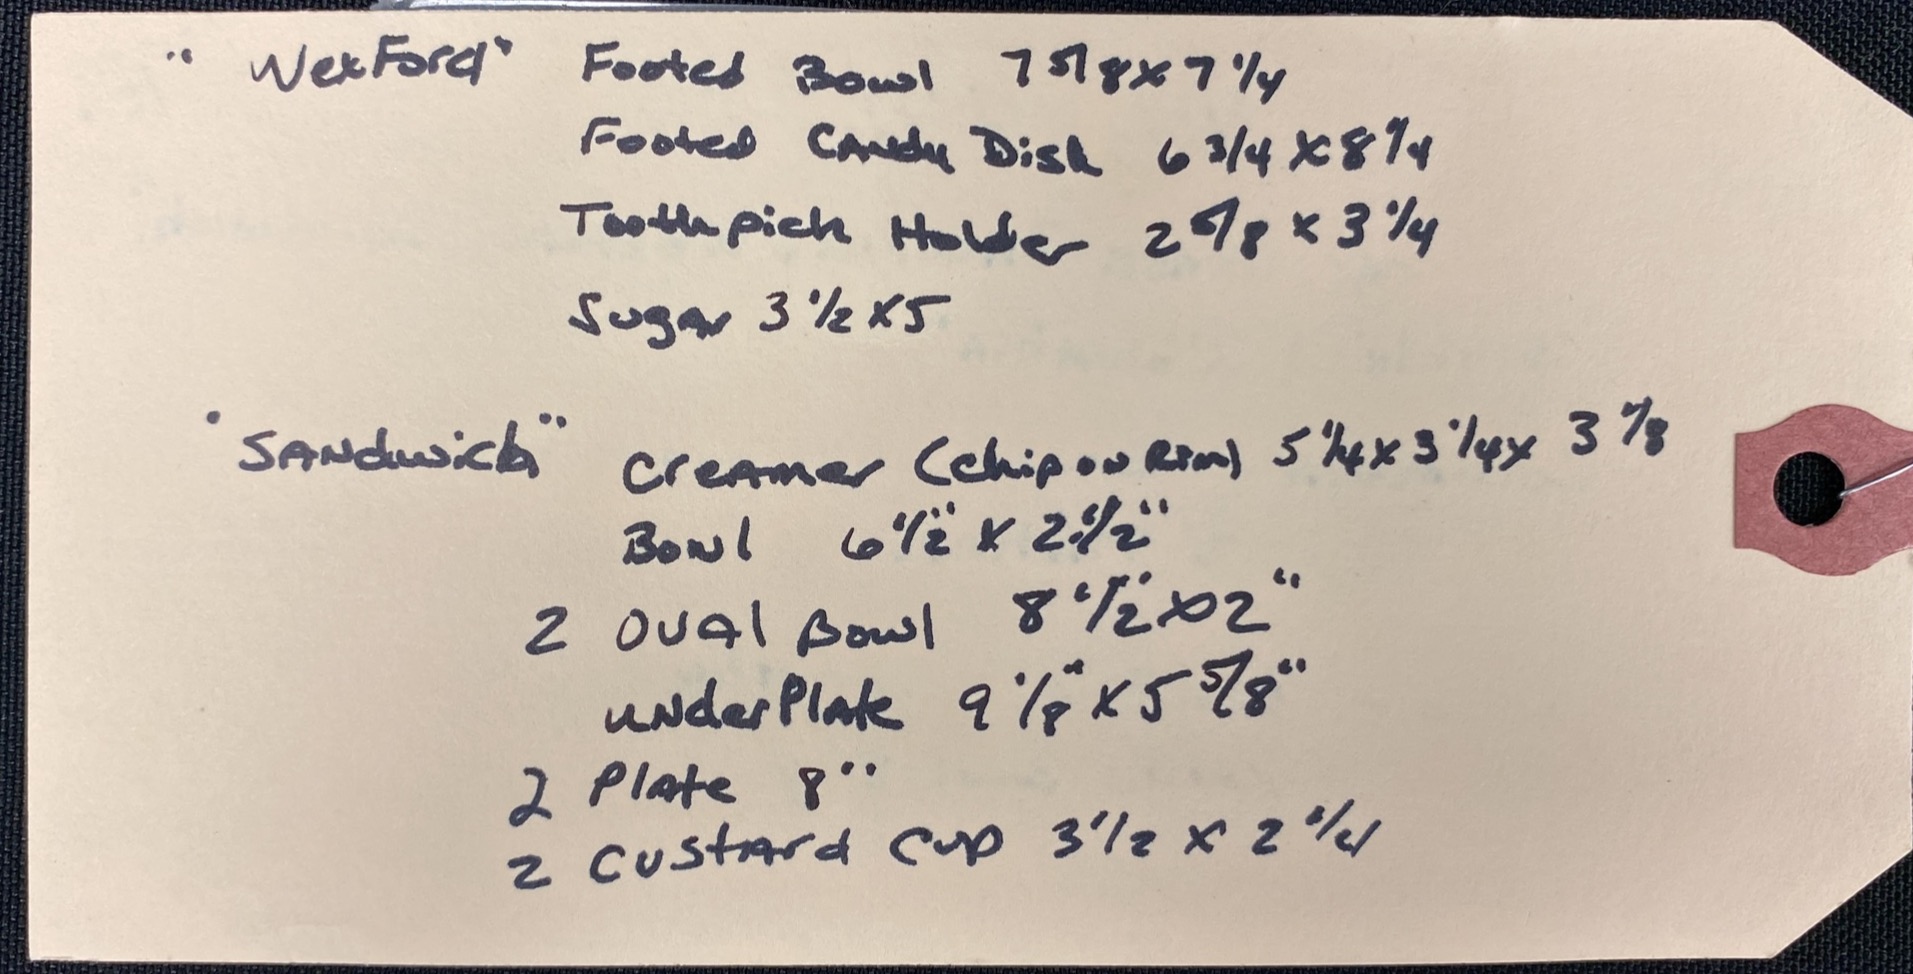 "Wexford" Footed Bowl 7 5/8 x 7 1/4
Footed Candy Dish 6 3/4 x 8 1/4
Toothpick Holder 2 5/8 x 3 1/4
Sugar 3 1/2 x 5
"Sandwich" Creamer (chip on Rim) 5 1/4 x 3 1/4 x 3 7/8
Bowl 6 1/2" x 2 1/2"
2 Oval Bowl 8 1/2" x 2"
underPlate 9 1/8" x 5 5/8"
2 Plate 8"
2 Custard Cup 3 1/2 x 2 1/4